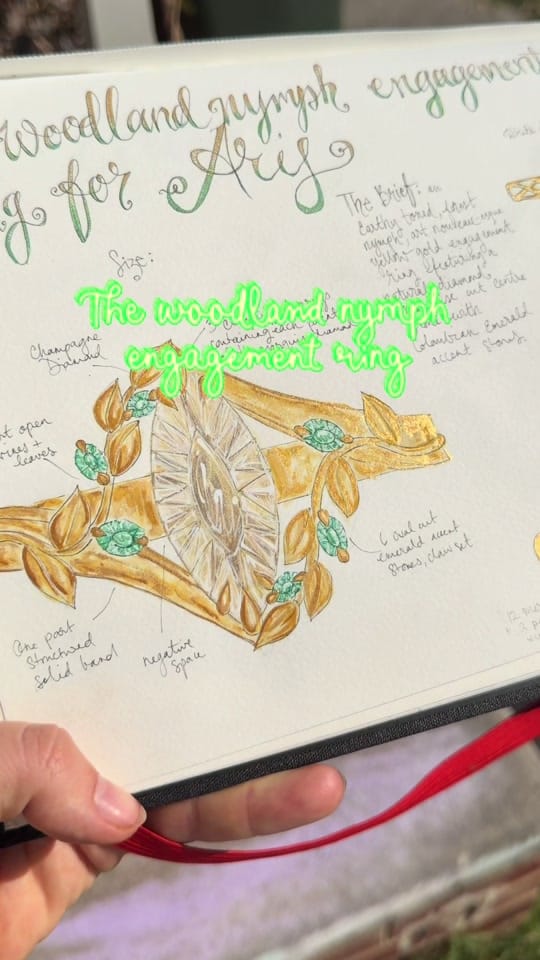 woodland nymph engagement
g for Aris
Size:
The Brief: an
Earthy toned, forest
nymph, art nouveau-esque
yellow gold engagement
ring featuring a
diamond
cut centre
with
Colombian Emerald
accent stones.
The woodland nymph
engagement ring
containing each
Champagne
Diamond
open
vines +
leaves
6 oval cut
emerald accent
stones, claw set
One part
structured
solid band
negative
space